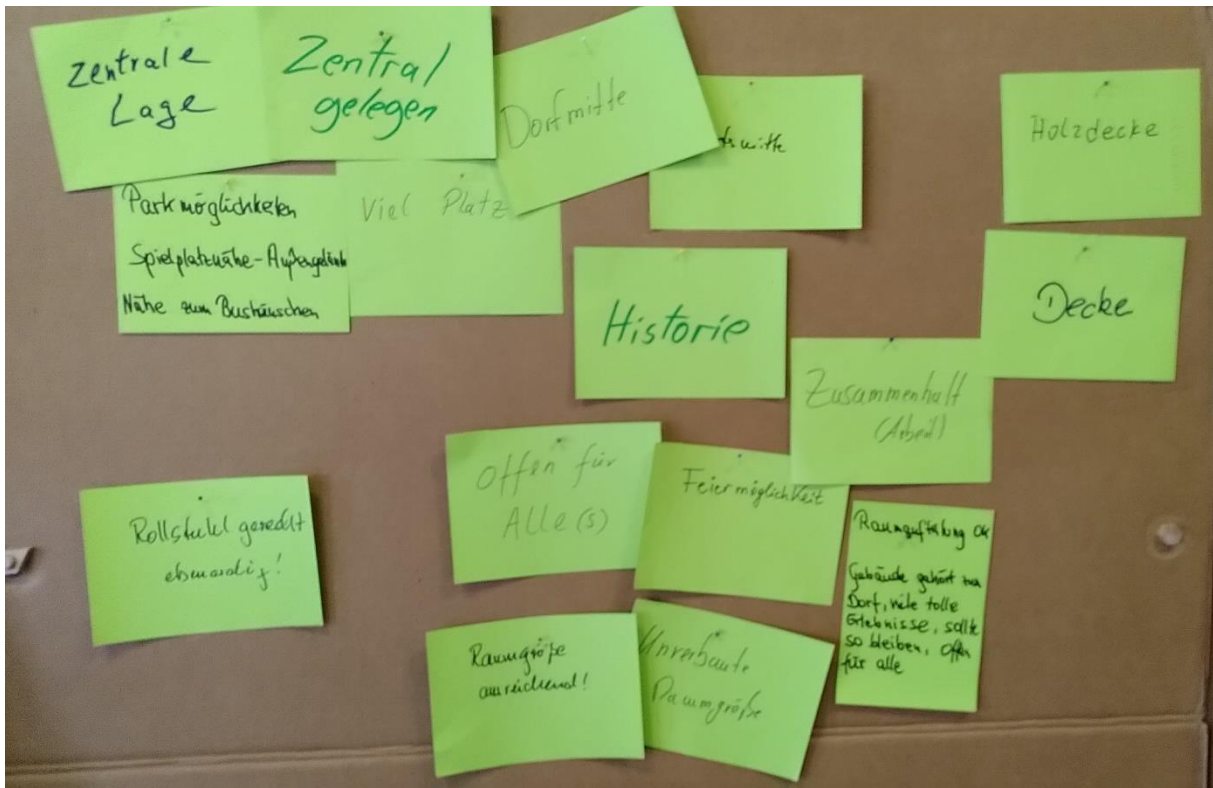 Zentrale
Lage
Zentral
gelegen
Dorfmitte
Holzdecke
Parkmöglichkeiten
Spielplatznähe - Außengelände
Nähe zum Bushäuschen
Viel Platz
Historie
Decke
Zusammenhalt
(Arbeit)
Offen für
Alle(s)
Feiermöglichkeit
Rollstuhl gerecht
ebenerdig!
Raumaufteilung ok
Gebäude gehört zum
Dorf, viele tolle
Erlebnisse, sollte
so bleiben, offen
für alle
Raumgröße
ausreichend!
Unverbaute
Raumgröße